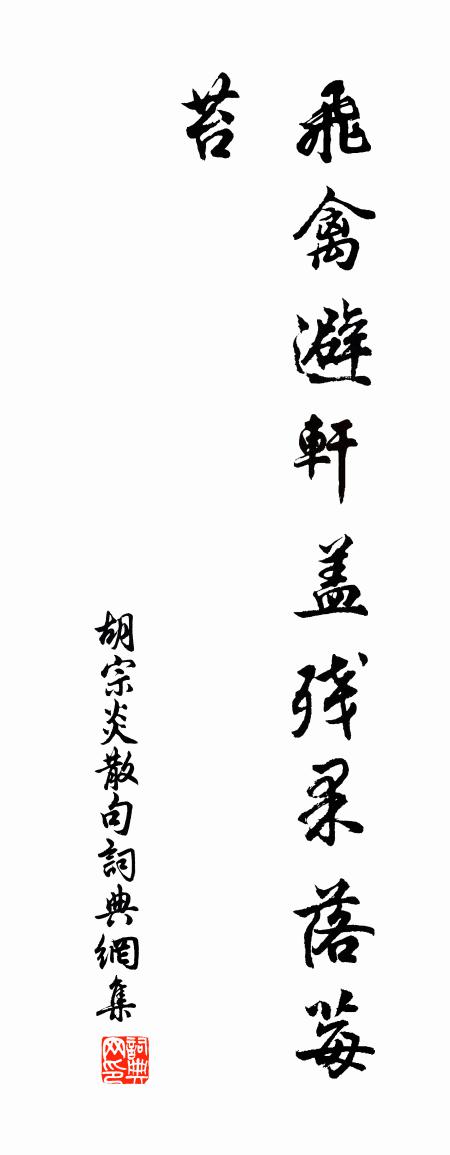 飛禽避軒盖殘果落莓
苔
胡宗炎散句詞典網集
詞典网印